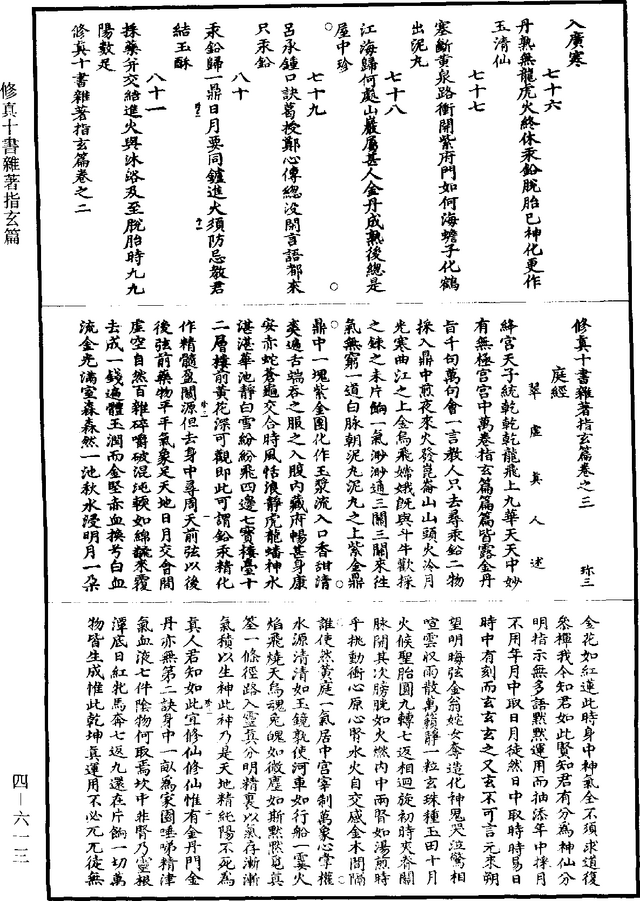 入廣寒
七十六
丹熟無龍虎火終休汞鉛脫胎已神化更作
玉清仙
七十七
塞斷黃泉路衝開紫府門如何海蟾子化鶴
出泥丸
七十八
江海歸何處山巖屬甚人金丹成熟後總是
屋中珍
七十九
呂承鍾口訣葛授鄭心傳總沒閑言語都來
只汞鉛
八十
汞鉛歸一鼎日月要同鑪進火須防忌教君
結玉酥
八十一
採藥并交結進火與沐浴及至脫胎時九九
陽數足
修真十書雜著指玄篇卷之二
修真十書雜著指玄篇卷之三
珎三
庭經
翠虛真人述
絳宮天子統乾乾乾龍飛上九華天天中妙
有無極宮宮中萬卷指玄篇篇篇皆露金丹
旨千句萬句會一言教人只去尋汞鉛二物
採入鼎中煎夜來火發崑崙山山頭火冷月
光寒曲江之上金烏飛嫦娥旣與斗牛歡採
之鍊之未片餉一氣渺渺通三關三關來往
氣無窮一道白脉朝泥丸泥丸之上紫金鼎
鼎中一塊紫金團化作玉漿流入口香甜清
爽遍舌端吞之服之入腹內藏府暢甚身康
安赤蛇蒼龜交合時風恬浪靜虎龍蟠神水
湛湛華池靜白雪紛紛飛四邊七寶樓臺十
二層樓前黃花深可觀即此可謂鉛汞精化
作精髓盈關源但去身中尋周天前弦以後
後弦前藥物平平氣象足天地日月交會間
虛空自然百雜碎嚼破混沌軟如綿虀來覆
去成一錢遍體玉潤而金堅赤血換兮白血
流金光滿室森森然一池秋水浸明月一朵
金花如紅蓮此時身中神氣全不須求道復
參禪我今知君如此賢知君有分為神仙分
明指示無多語默默運用而抽添年中採月
不用年月中取日月徒然日中取時時易日
時中有刻而玄玄玄之又玄不可言元來朔
望明晦弦金翁姹女奪造化神鬼哭泣驚相
喧雲收雨散萬籟靜一粒玄珠種玉田十月
火候聖胎圓九轉七返相迴旋初時夾脊關
脉開其次膀胱如火燃內中兩腎如湯煎時
乎挑動衝心原心腎水火自交感金木間隔
誰使然黃庭一氣居中宮宰制萬象心掌權
水源清清如玉鏡孰使河車如行船一霎火
焰飛燒天烏魂兔魄如微塵如斯默默覓真
筌一條徑路入靈真分明精裏以氣存漸漸
氣積以生神此神乃是天地精純陽不死為
真人君知如此宜修仙修仙惟有金丹門金
丹亦無第二訣身中一畝為家園唾啼精津
氣血液七件陰物何取焉坎中非腎乃靈根
潭底日紅牝馬奔七返九還在片餉一切萬
物皆生成惟此乾坤真運用不必兀兀徒無
修真十書雜著指玄篇
四—六一三